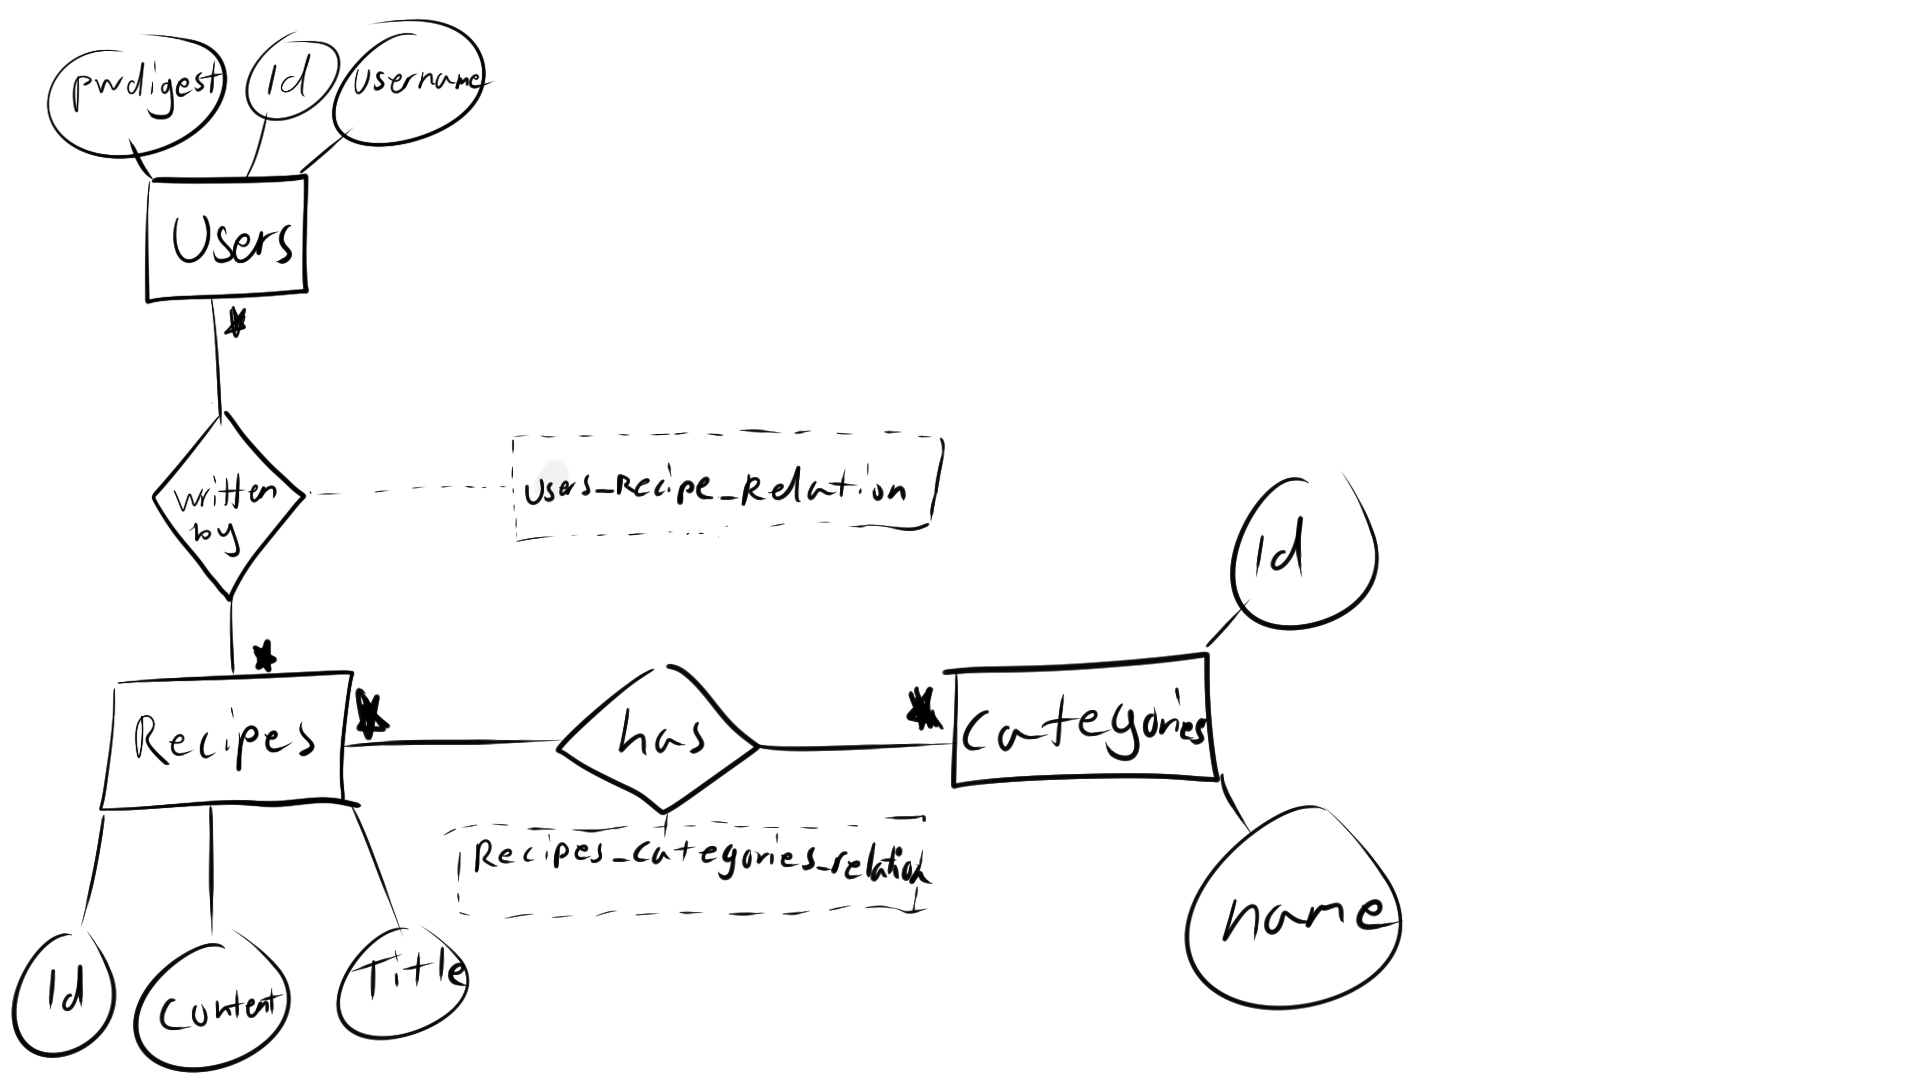 pwdigest
Id
Username
Users
*
written
by
Users_Recipe_Relation
*
Recipes
*
has
*
Categories
Id
Recipes_Categories_relation
name
Id
Content
Title